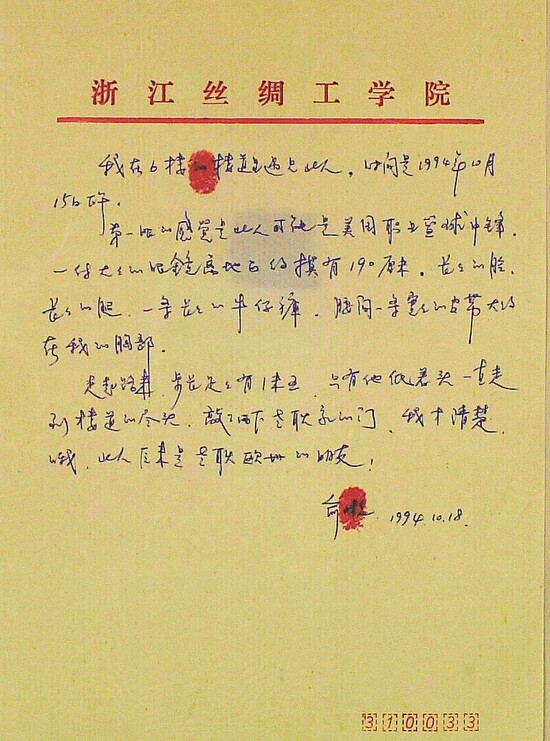 浙江丝绸工学院
我在6楼的楼道里遇见此人。时间是1994年10月
15日下午。
第一眼的感觉是此人可能是美国职业篮球中锋.
一付大大的眼镜离地面约摸有190厘米。长长的脸,
长长的腿,一条长长的牛仔裤。腰间一条宽宽的皮带大约
在我的胸部。
走起路来,步长足足有1米五,只有他低着头一直走
到楼道的尽头,敲了两下老耿家的门,我才清楚,
哦,此人原来是老耿欧州的朋友!
俞 1994.10.18.
310033